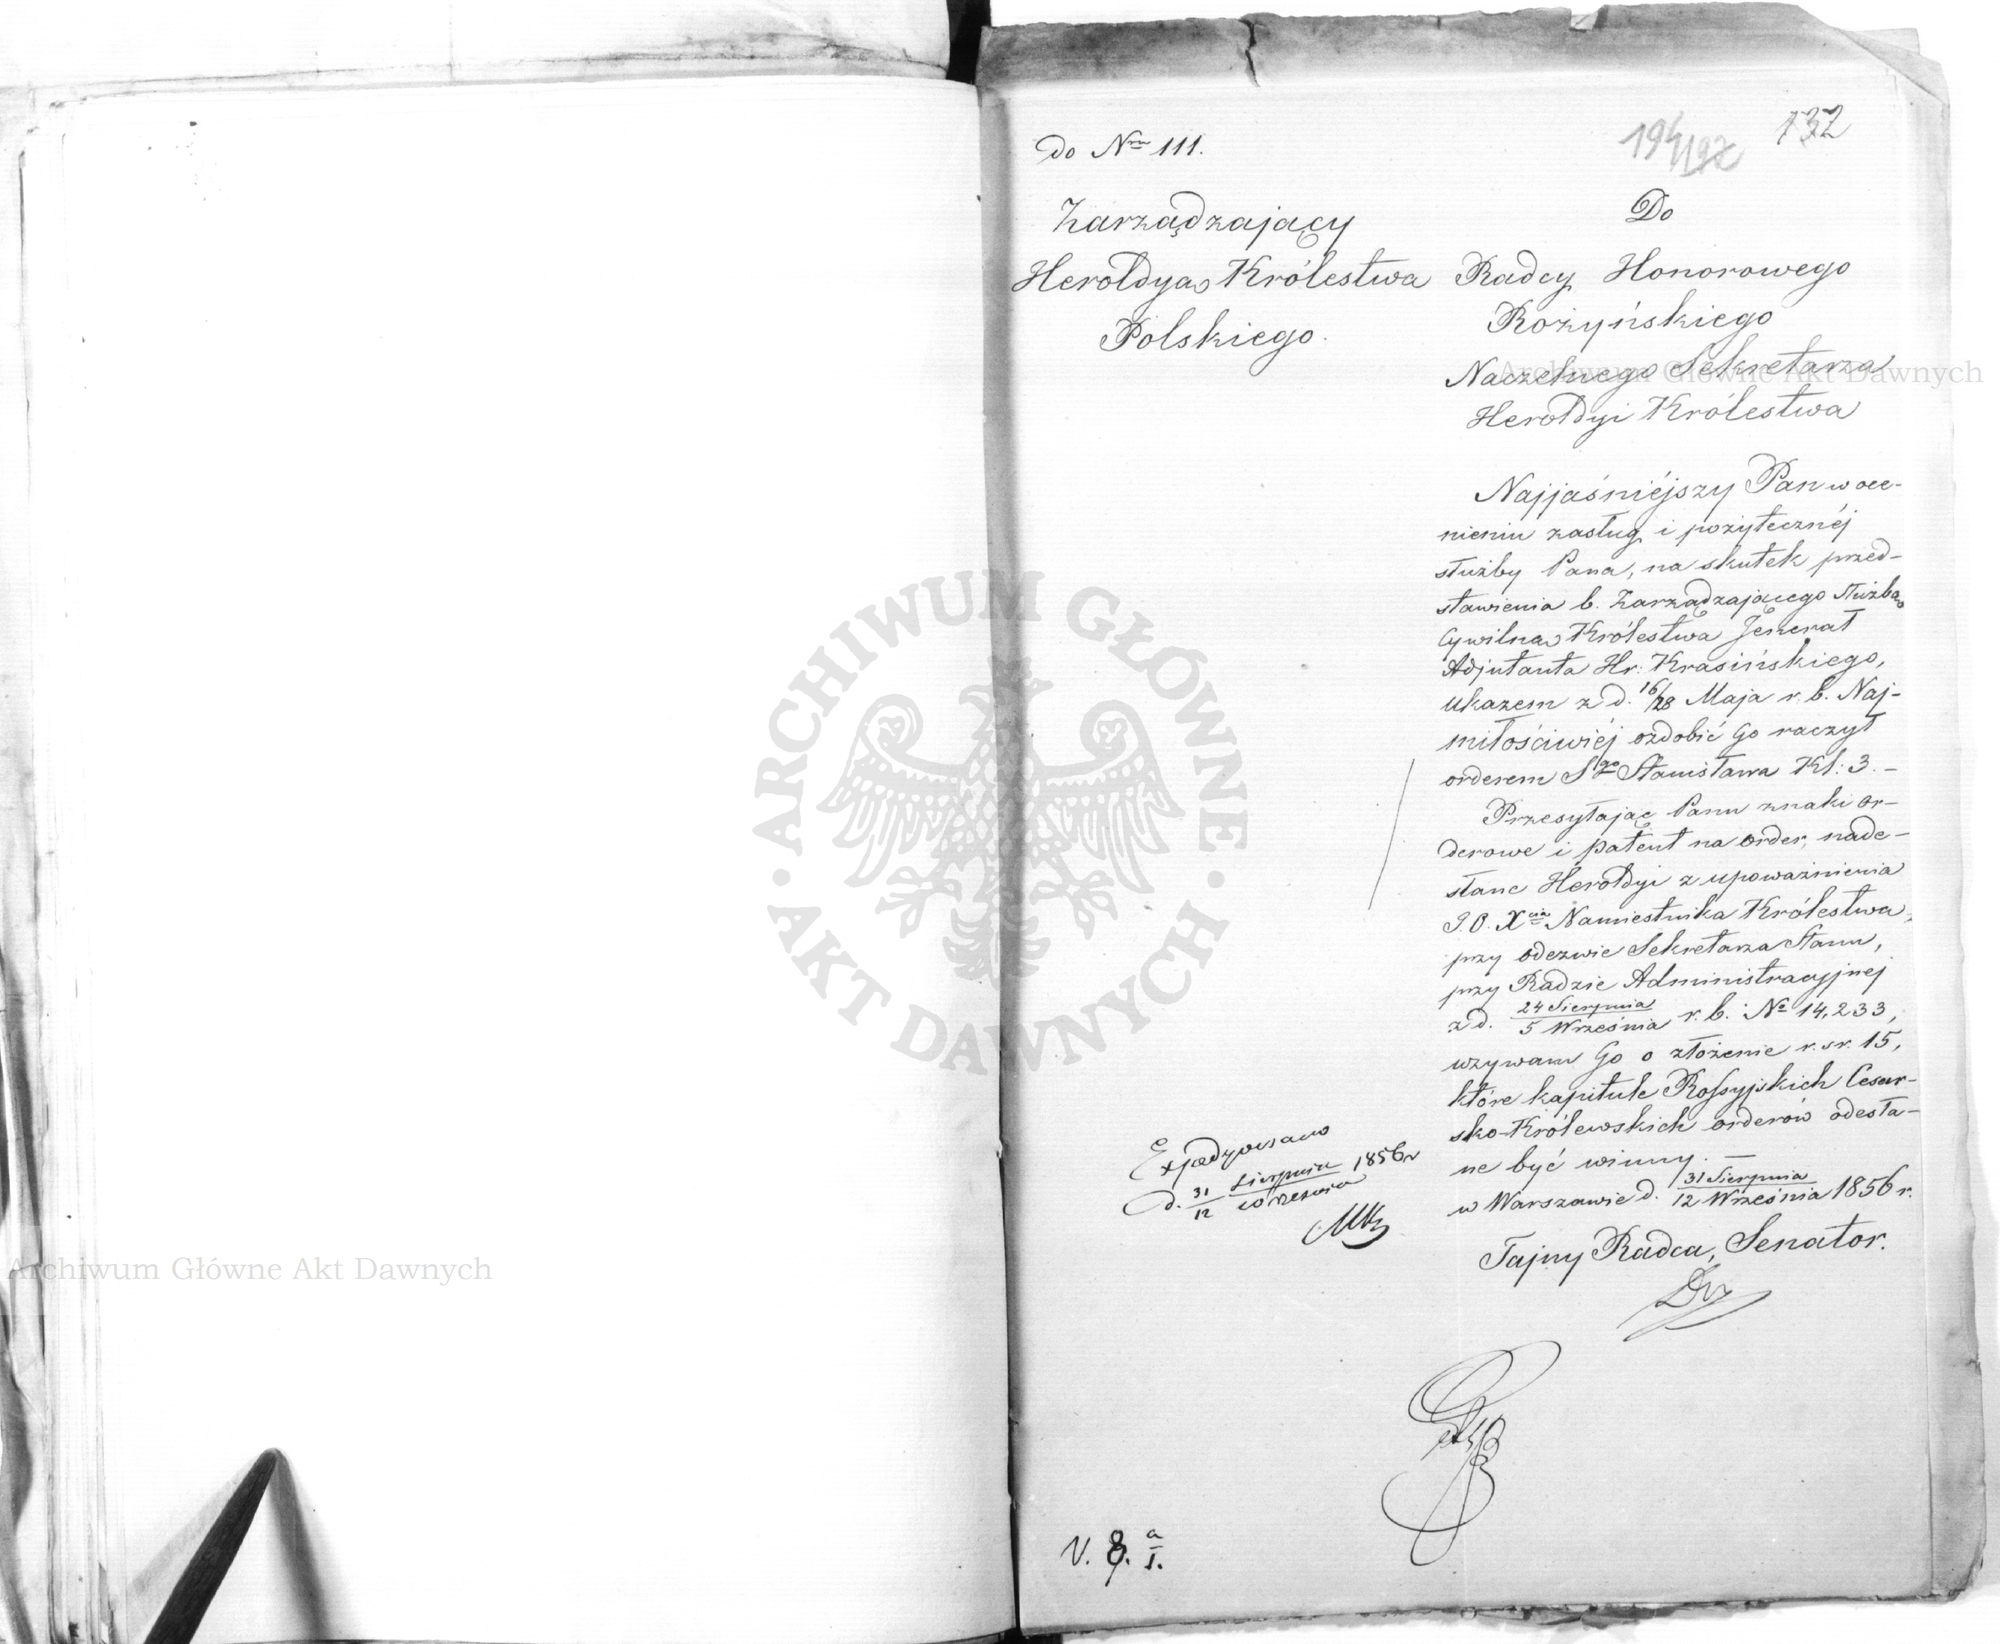 132
194
192
do Nrn 111.
Zarządzający
Heroldyą Królestwa
Polskiego.
Do
Radcy Honorowego
Rożyńskiego
Naczelnego Sekretarza
Heroldyi Królestwa
Najjaśniéjszy Pan w oce-
nieniu zasług i pożytecznéj
służby Pana, na skutek przed-
stawienia b. Zarządzającego służbą
Cywilną Królestwa Jenerał
Adjutanta Hr. Krasińskiego,
ukazem z d. 16/28 Maja r. b. Naj-
miłościwiéj ozdobić Go raczył
orderem Sgo Stanisława Kl: 3. –
Przesyłając Panu znaki or-
derowe i patent na order, nade-
słane Heroldyi z upoważnienia
J. O. Xcia Namiestnika Królestwa,
przy odezwie Sekretarza Stanu,
przy Radzie Administracyjnej
z d. 24 Sierpnia / 5 Września r. b. No 14,233,
wzywam Go o złożenie r. sr. 15,
które kapitule Rossyjskich Cesar-
sko-Królewskich orderów odesła-
ne być winny. –
w Warszawie d. 31 Sierpnia / 12 Września 1856 r.
Tajny Radca, Senator.
Expedyowano
d. 31/12 Sierpnia / Września 1856 r
V. 8. a/1.
Archiwum Główne Akt Dawnych
Archiwum Główne Akt Dawnych
· ARCHIWUM GŁÓWNE · AKT DAWNYCH